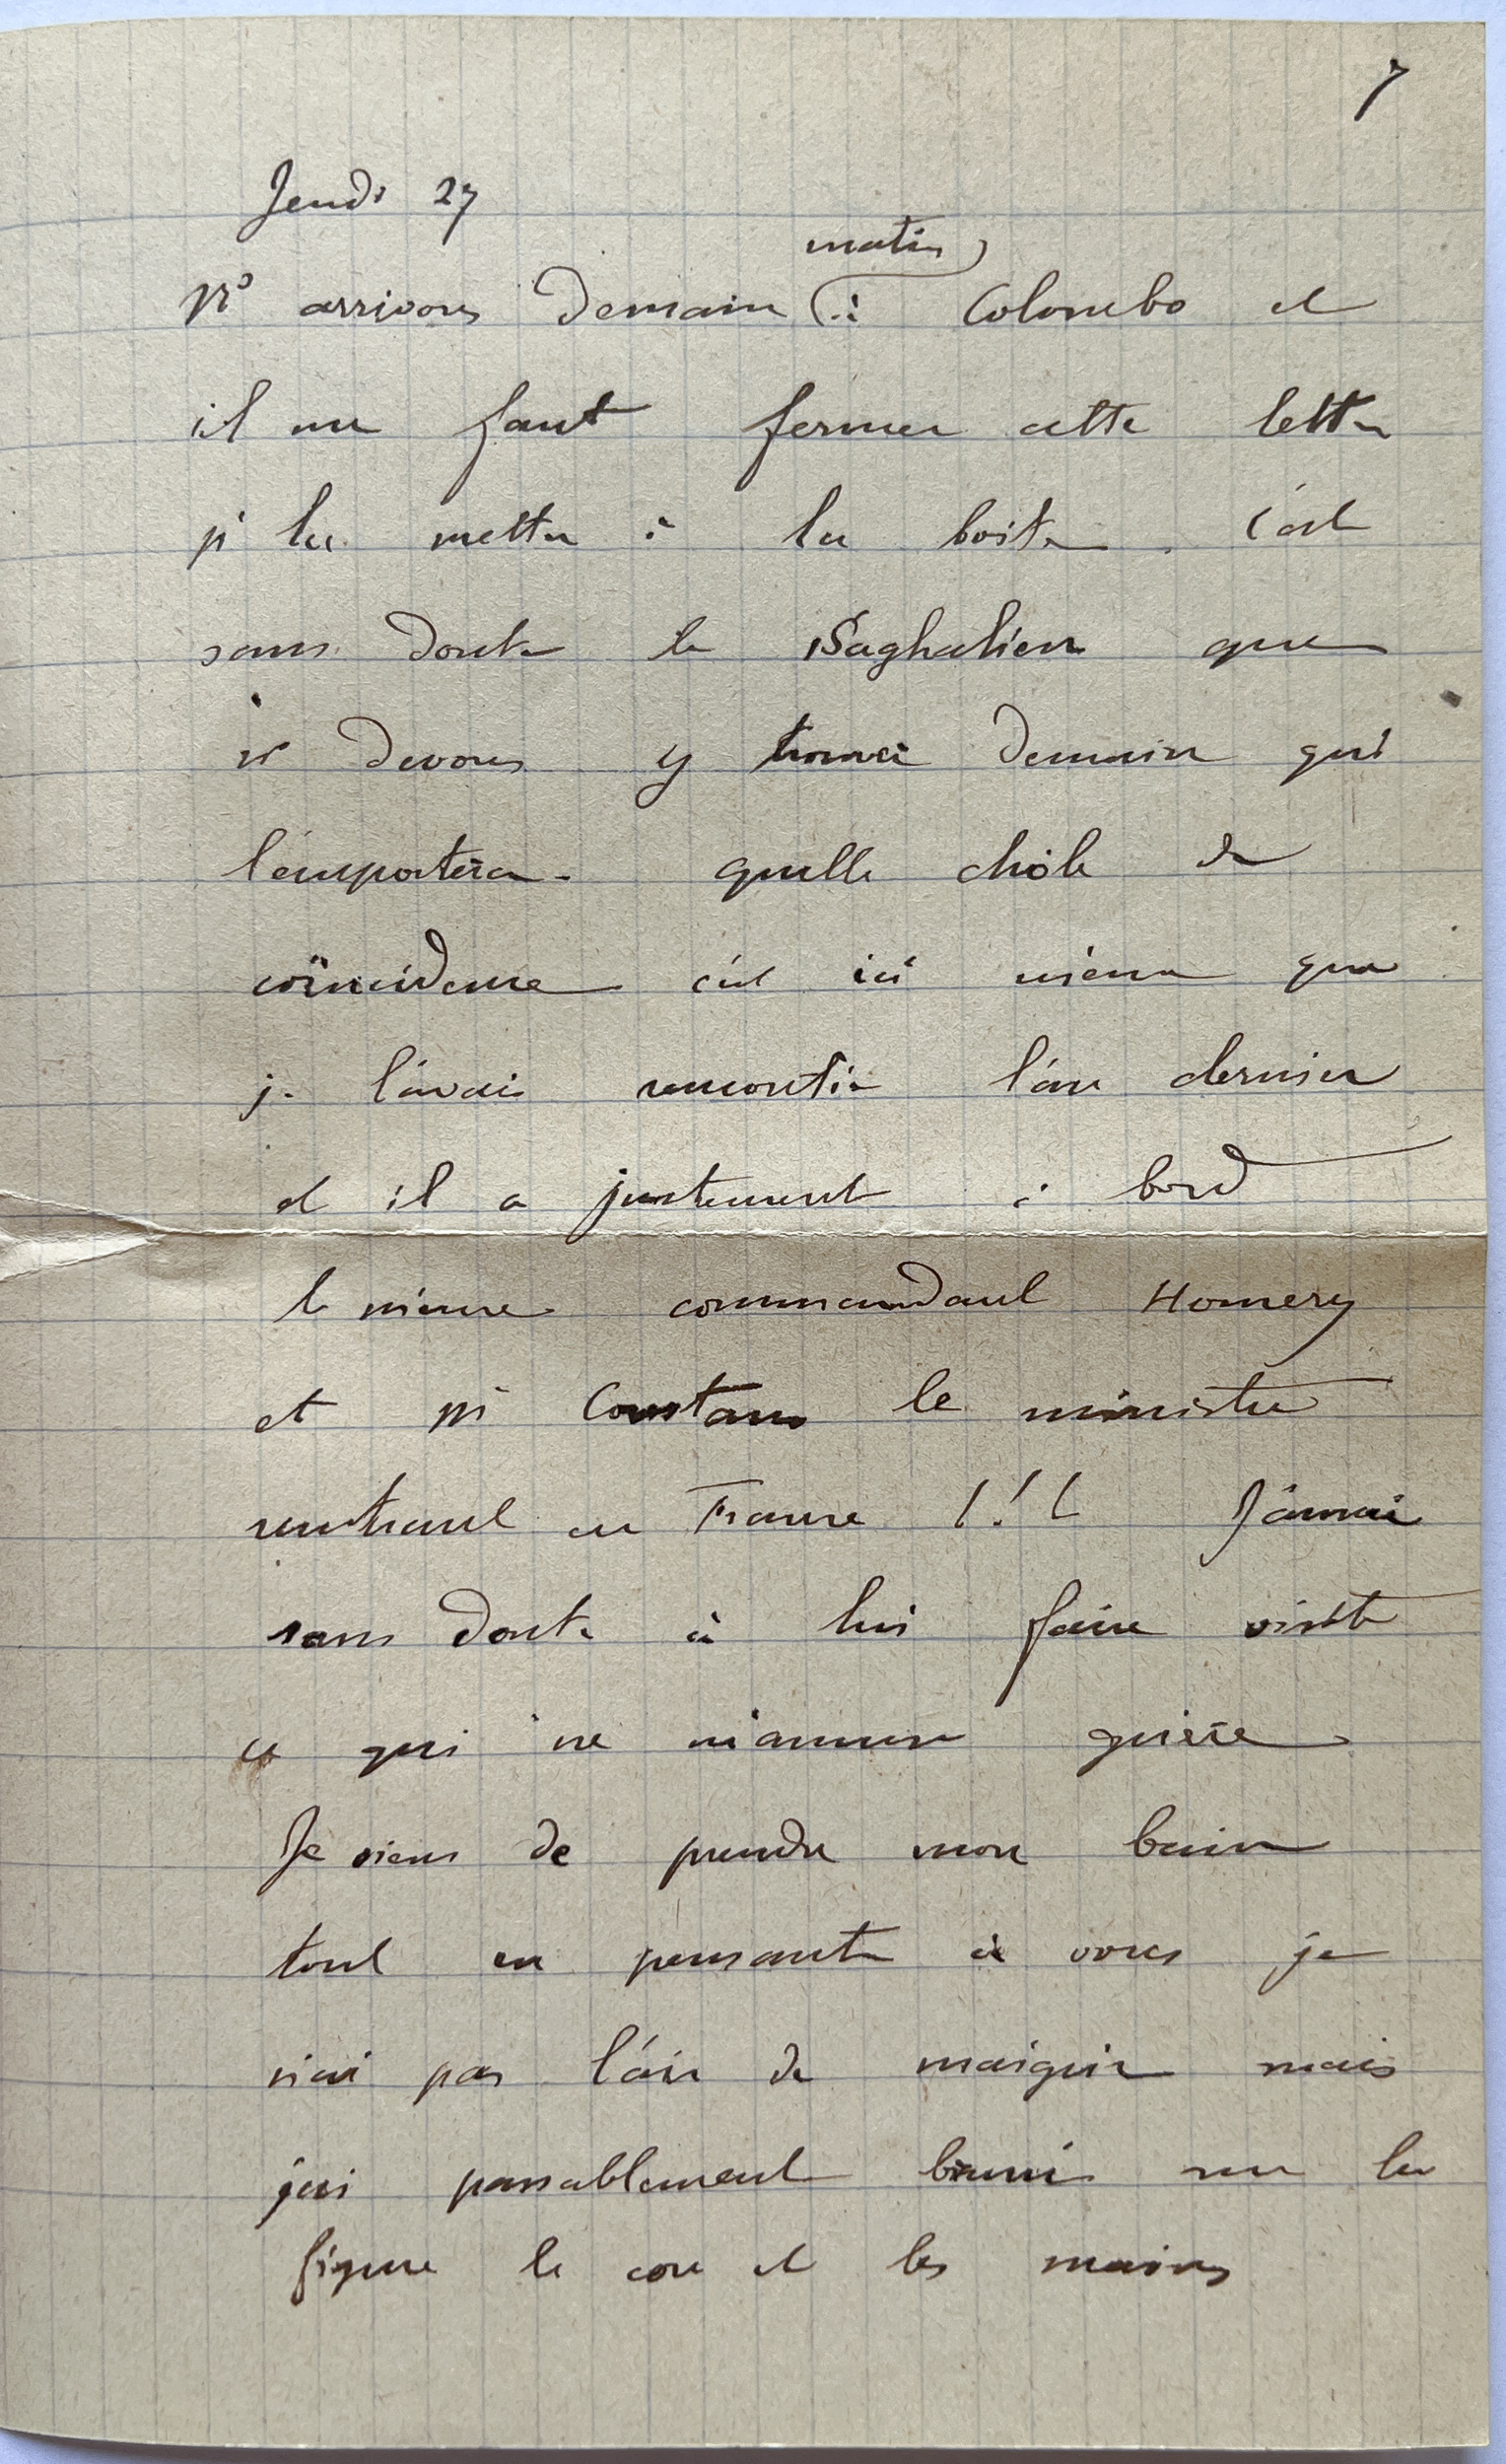 7
Jeudi 27
matin
Ns arrivons demain à Colombo et
il me faut fermer cette lettre
pr la mettre à la boite. C'est
sans doute le Saghalien que
ns devons y trouver demain qui
l'emportera - quelle drôle de
coïncidence c'est ici même que
je l'avais rencontré l'an dernier
et il a justement à bord
le même commandant Homery
et Mr Constans le ministre
rentrant en France !!! J'aurai
sans doute à lui faire visite
ce qui ne m'amuse guère
Je viens de prendre mon bain
tout en pensant à vous je
n'ai pas l'air de maigrir mais
j'ai passablement bruni sur la
figure le cou et les mains